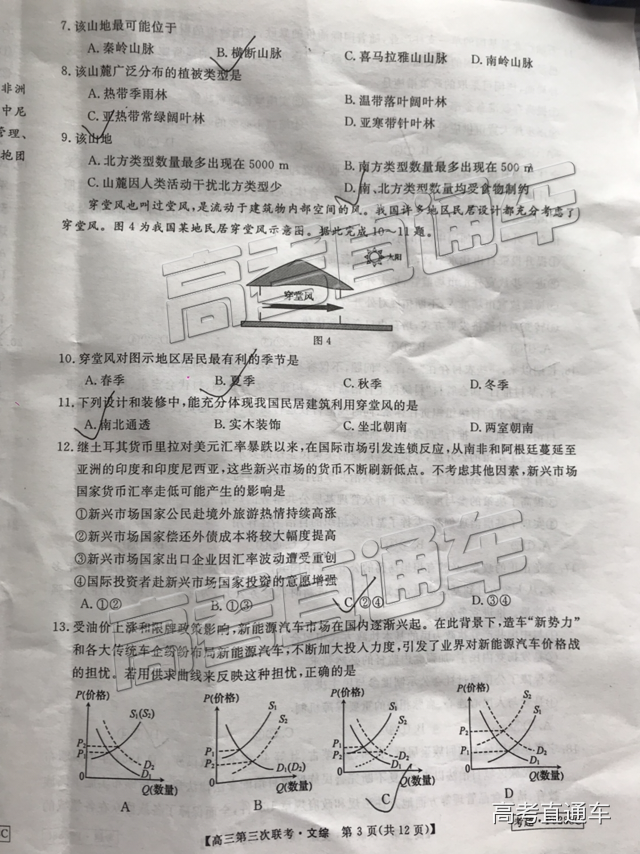 7. 该山地最可能位于
A. 秦岭山脉 B. 横断山脉 C. 喜马拉雅山山脉 D. 南岭山脉
8. 该山麓广泛分布的植被类型是
A. 热带季雨林 B. 温带落叶阔叶林
C. 亚热带常绿阔叶林 D. 亚寒带针叶林
9. 该山地
A. 北方类型数量最多出现在 5000 m B. 南方类型数量最多出现在 500 m
C. 山麓因人类活动干扰北方类型少 D. 南、北方类型数量均受食物制约
穿堂风也叫过堂风,是流动于建筑物内部空间的风。我国许多地区民居设计都充分考虑了
穿堂风。图 4 为我国某地民居穿堂风示意图。据此完成 10～11 题。
太阳
穿堂风
图 4
10. 穿堂风对图示地区居民最有利的季节是
A. 春季 B. 夏季 C. 秋季 D. 冬季
11. 下列设计和装修中,能充分体现我国民居建筑利用穿堂风的是
A. 南北通透 B. 实木装饰 C. 坐北朝南 D. 两室朝南
12. 继土耳其货币里拉对美元汇率暴跌以来,在国际市场引发连锁反应,从南非和阿根廷蔓延至
亚洲的印度和印度尼西亚,这些新兴市场的货币不断刷新低点。不考虑其他因素,新兴市场
国家货币汇率走低可能产生的影响是
①新兴市场国家公民赴境外旅游热情持续高涨
②新兴市场国家偿还外债成本将较大幅度提高
③新兴市场国家出口企业因汇率波动遭受重创
④国际投资者赴新兴市场国家投资的意愿增强
A. ①② B. ①③ C. ②④ D. ③④
13. 受油价上涨和限牌政策影响,新能源汽车市场在国内逐渐兴起。在此背景下,造车“新势力”
和各大传统车企纷纷布局新能源汽车,不断加大投入力度,引发了业界对新能源汽车价格战
的担忧。若用供求曲线来反映这种担忧,正确的是
P(价格) P(价格) P(价格) P(价格)
S₁(S₂) S₁ S₂ S₁ S₂ S₂ S₁
P₂ P₁ P₁ P₂ P₁ P₂ P₂ P₁
D₂ D₁ D₁(D₂) D₂ D₁ D₂ D₁
0 Q(数量) 0 Q(数量) 0 Q(数量) 0 Q(数量)
A B C D
【高三第三次联考·文综 第 3 页(共 12 页)】
非洲
中尼
管理、
抱团
C】
高考直通车
高考直通车
高考直通车